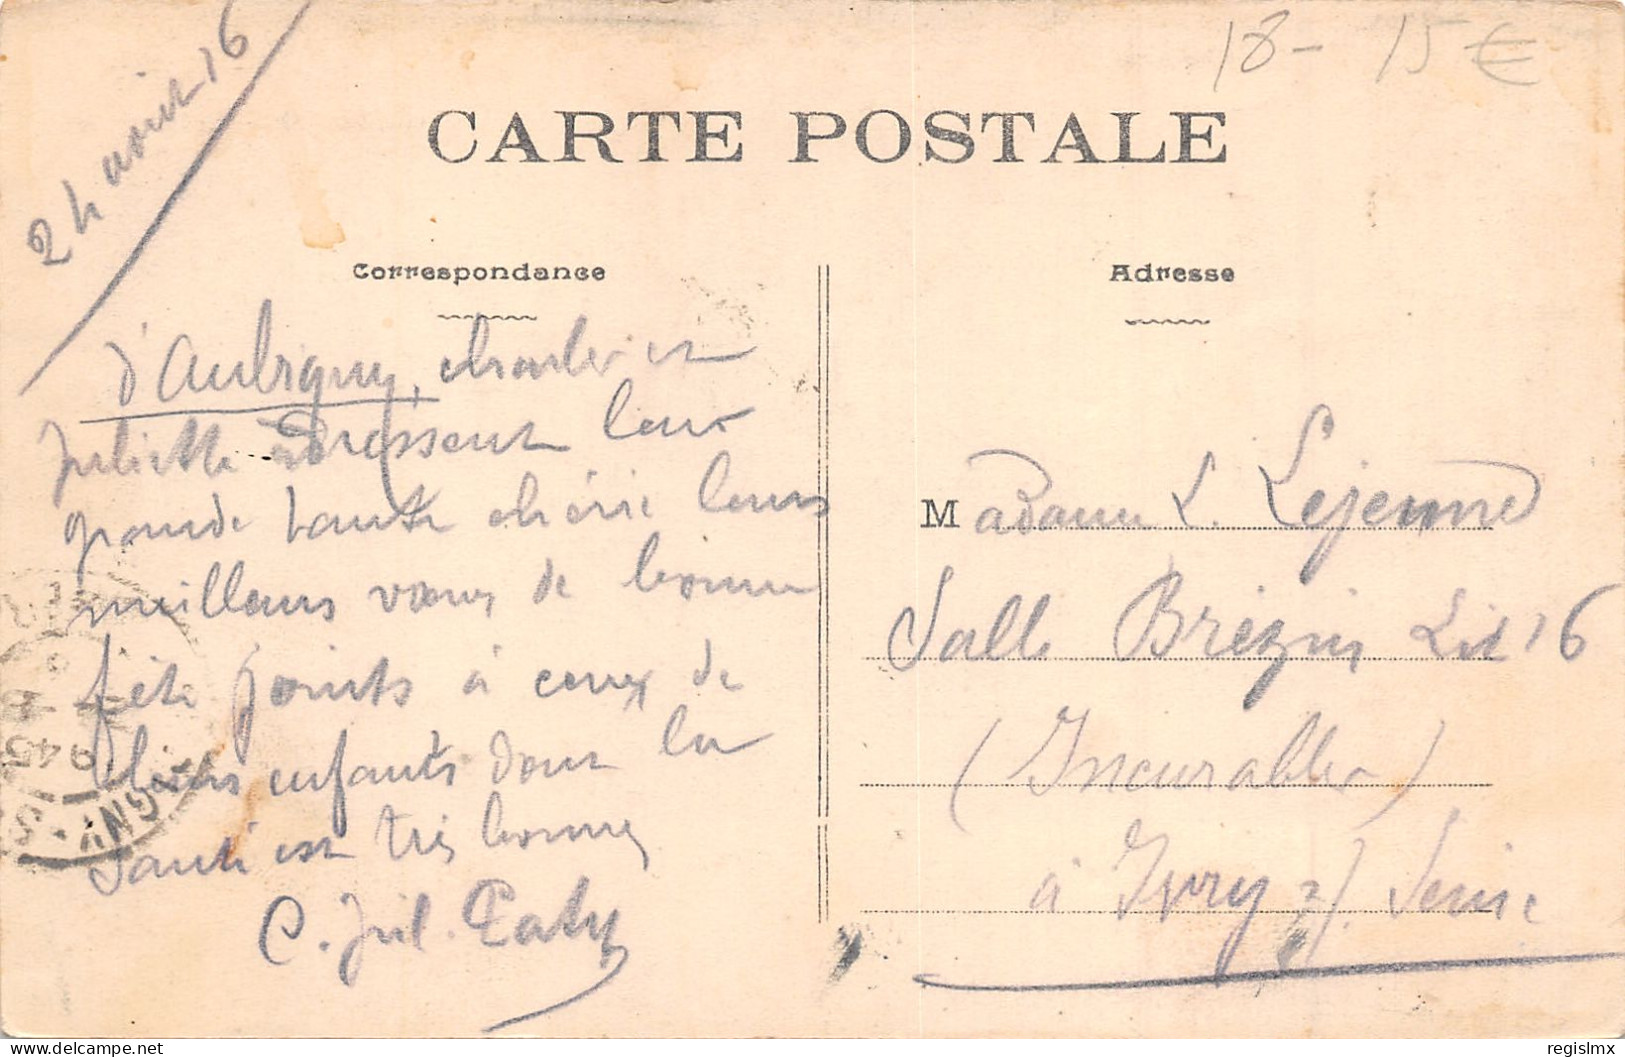 24 août 16
18 - 15 €
CARTE POSTALE
Correspondance
Adresse
d'Aubigny, charles et
Juliette adressent leur
grande tante chérie leurs
meilleurs vœux de bonne
fête joints à ceux de
chers enfants dont la
santé est très bonne
C. Jul.
Madame L. Lejeune
Salle Brézin Lit 16
(Incurables)
à Ivry s/. Seine
945
delcampe.net
regislmx